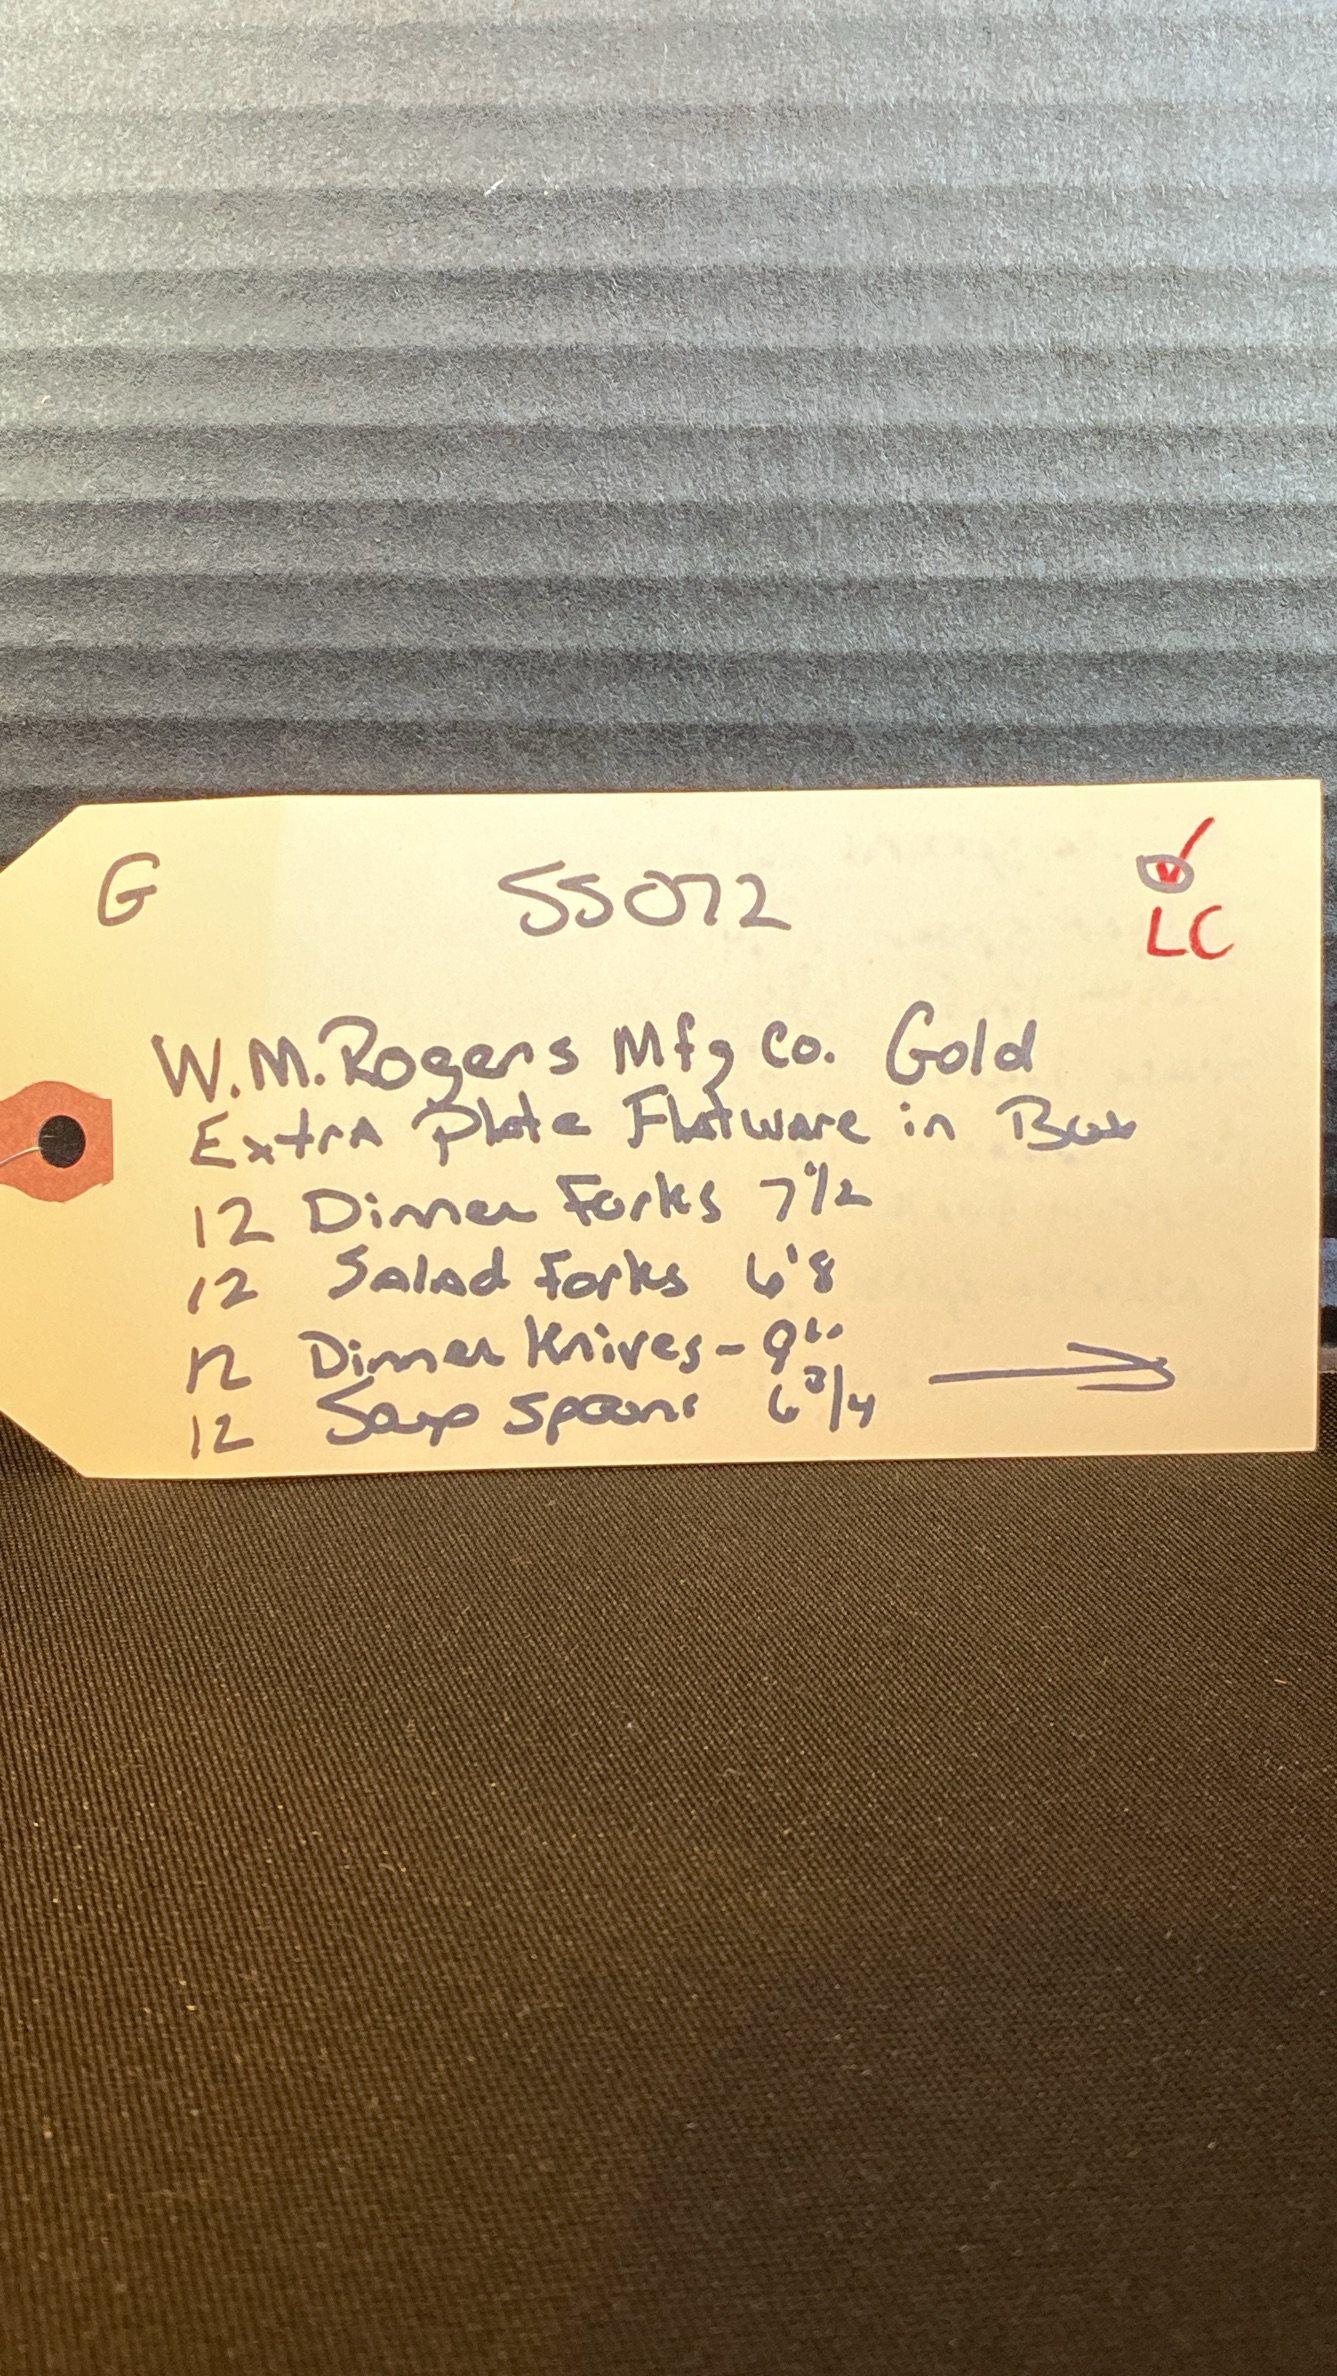 G 55072
LC
W.M. Rogers Mfg Co. Gold
Extra Plate Flatware in Box
12 Dinner Forks 7 1/2
12 Salad Forks 6'8
12 Dinner Knives - 9"
12 Soup Spoons 6 3/4